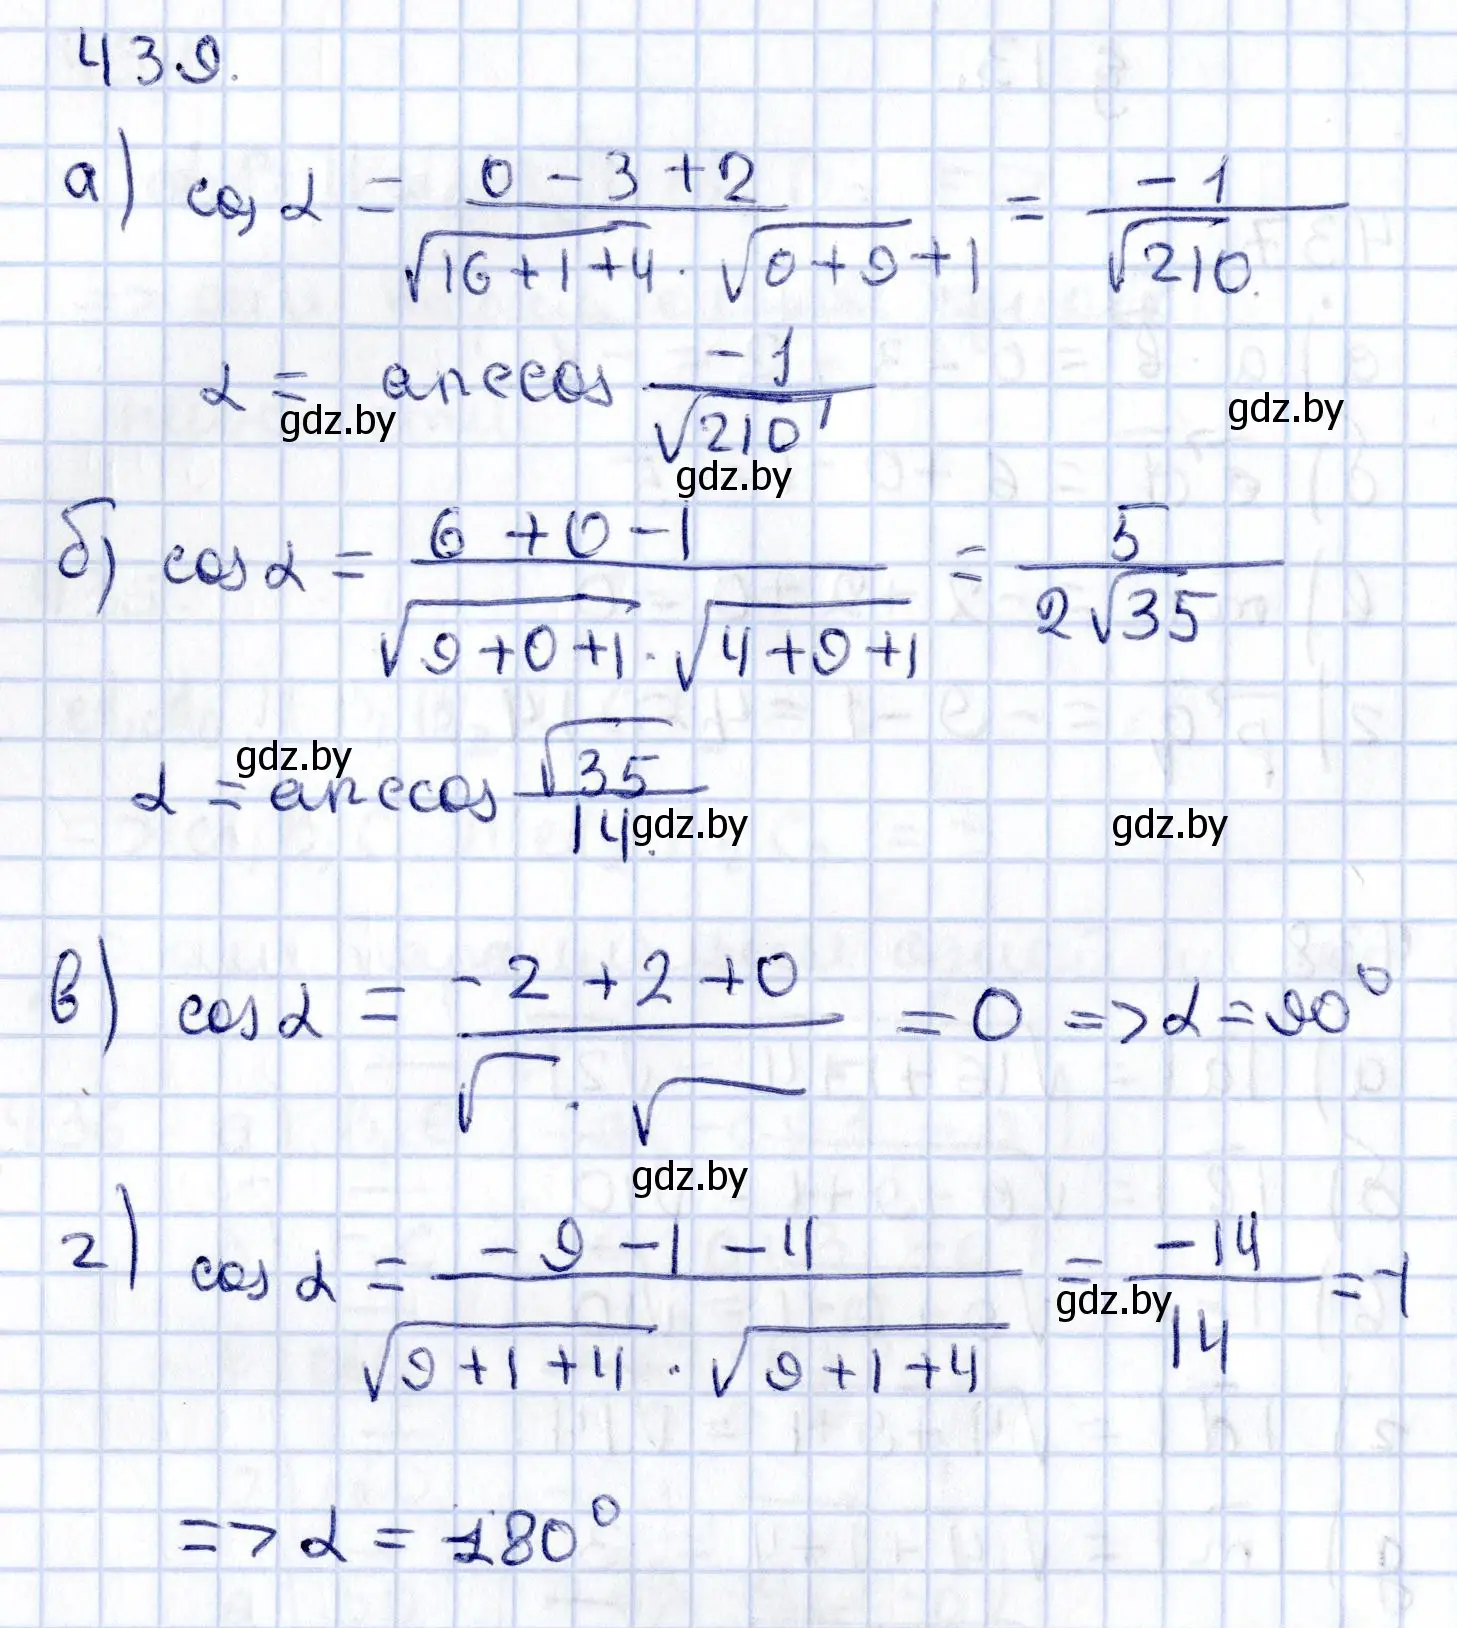 439.
а) cos α = (0 - 3 + 2) / (√(16+1+4) · √(0+9+1)) = -1 / √210.
α = arccos -1 / √210
gdz.by gdz.by
gdz.by
б) cos α = (6 + 0 - 1) / (√(9+0+1) · √(4+9+1)) = 5 / (2√35)
gdz.by
α = arccos √35 / 14.
gdz.by gdz.by
в) cos α = (-2 + 2 + 0) / (√ · √) = 0 => α = 90°
gdz.by
г) cos α = (-9 - 1 - 4) / (√(9+1+4) · √(9+1+4)) = -14 / 14 = -1
gdz.by
=> α = 180°